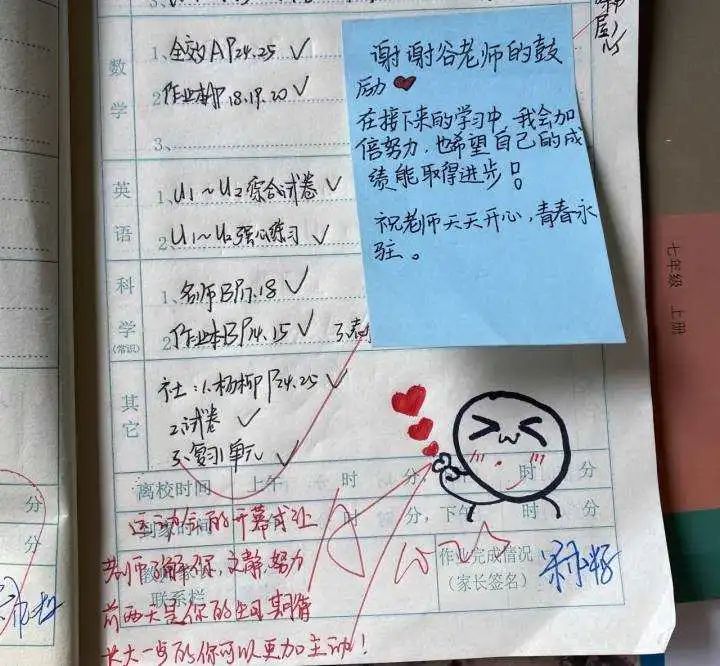 数学
1、全效A P24.25 ✓
2、作业本P18.19.20 ✓
3、
谢谢谷老师的鼓
励
在接下来的学习中,我会加
倍努力,也希望自己的成
绩能取得进步!
祝老师天天开心,青春永
驻。
英语
1、U1～U2综合试卷 ✓
2、U1～U2强化练习 ✓
科学
(常识)
1、名师B P17.18 ✓
2、作业本B P14.15 ✓
其它
社:1.杨柳P24.25 ✓
2.试卷 ✓
3.复习1单元 ✓
离校时间 上午 时 分, 下午 时 分
到家时间 时 分,下午 时 分
联系栏
作业完成情况
(家长签名)
运动会的开幕式让
老师了解你,文静,努力
前两天是你的生日,期待
长大一点的你可以更加主动!
分
分
七年级 上册